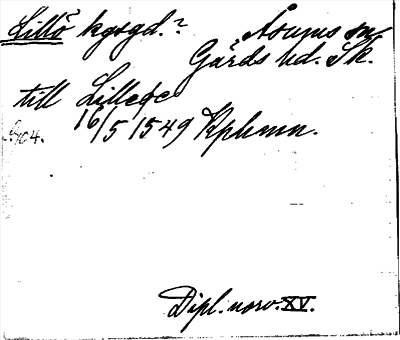 Lillö kgsgd.? Åsums sn
Gärds hd. Sk.
till Lilleøe
16/5 1549 Kphmn.
s. 104.
Dipl. norv. XV.